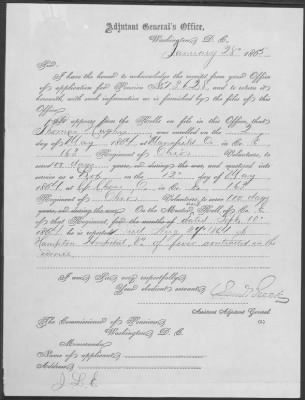 Adjutant General's Office,
Washington, D. C.
January 28" 1865
Sir:
I have the honor to acknowledge the receipt from your Office
of application for Pension No. 73628, and to return it
herewith, with such information as is furnished by the files of this
Office.
It appears from the Rolls on file in this Office, that
Thomas Hughes was enrolled on the 2
day of May 1864, at Mansfield O. in Co. E
162 Regiment of Ohio Volunteers, to
serve 100 days years, and during the war, and mustered into
service as a Priv. on the 12" day of May
1864, at Cp. Chase, O. in Co. E, 162
Regiment of Ohio Volunteers, to serve 100 days
years, and during the war. On the Muster Roll of Co. E
of that Regiment, for the months of dated Sept. 10"
1864 he is reported died Aug 27" 1864 at
Hampton Hospital, Va. of fever contracted in the
service
I am, Sir, very respectfully,
Your obedient servant,
Assistant Adjutant General
The Commissioner of Pensions
Washington, D. C.
Memoranda:
Name of applicant
Address